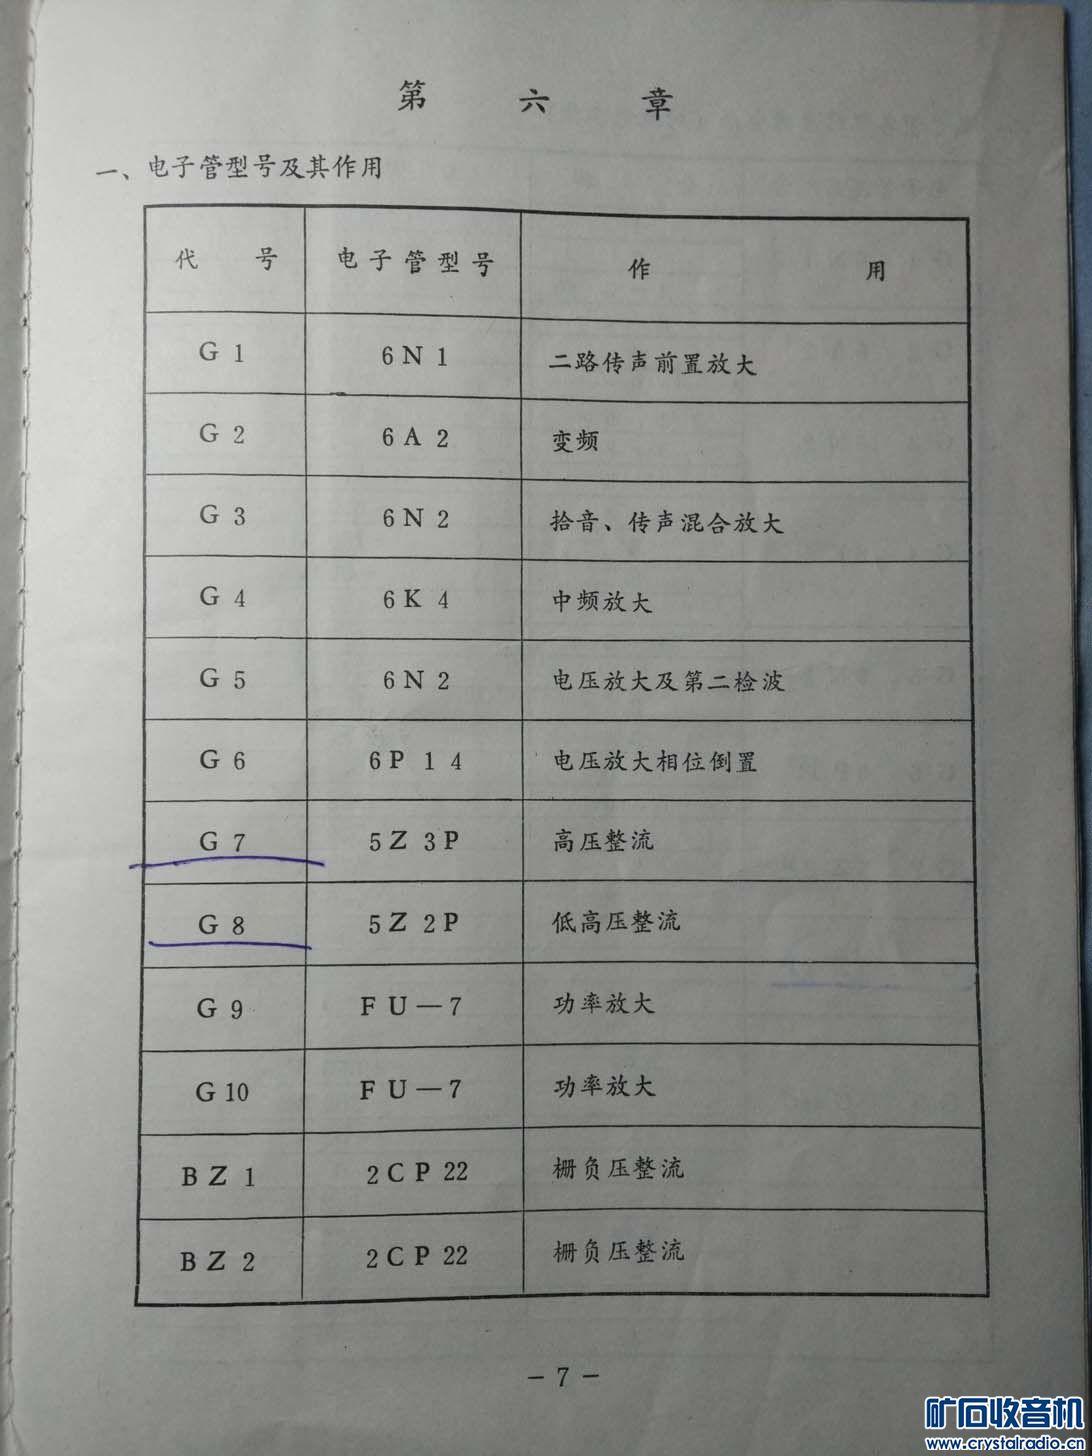 第六章
一、电子管型号及其作用
代号 电子管型号 作用
G1 6N1 二路传声前置放大
G2 6A2 变频
G3 6N2 拾音、传声混合放大
G4 6K4 中频放大
G5 6N2 电压放大及第二检波
G6 6P14 电压放大相位倒置
G7 5Z3P 高压整流
G8 5Z2P 低高压整流
G9 FU—7 功率放大
G10 FU—7 功率放大
BZ1 2CP22 栅负压整流
BZ2 2CP22 栅负压整流
－7－
矿石收音机
www.crystalradio.cn